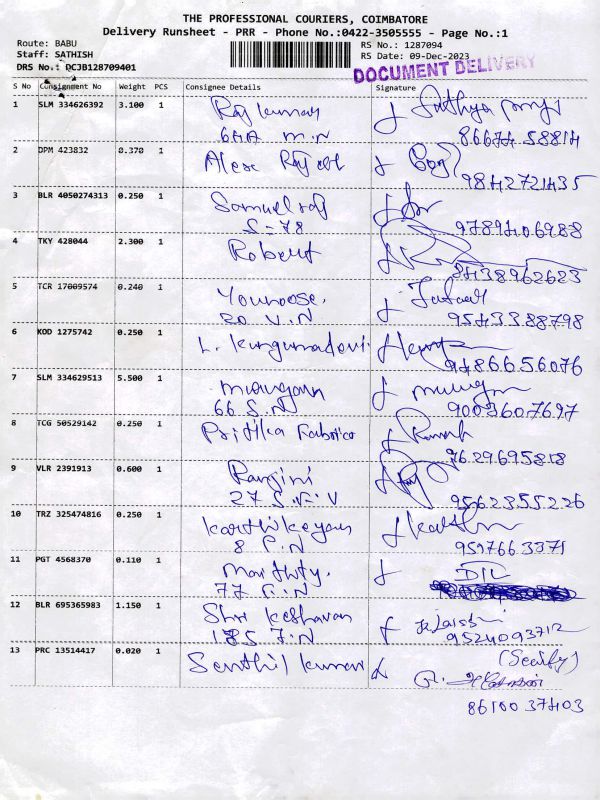 THE PROFESSIONAL COURIERS, COIMBATORE
Delivery Runsheet - PRR - Phone No.:0422-3505555 - Page No.:1
Route: BABU
Staff: SATHISH
DRS No.: DCJB128709401
RS No.: 1287094
RS Date: 09-Dec-2023
DOCUMENT DELIVERY
S No Consignment No Weight PCS Consignee Details Signature
1 SLM 334626392 3.100 1 Rajkumar
64A M.N 86674 58814
2 DPM 423832 0.370 1 Alex
9842721435
3 BLR 4050274313 0.250 1 Samuel raj
S-78 9789406988
4 TKY 428044 2.300 1 Robert
8438962623
5 TCR 17009574 0.240 1 Younoose.
20 V.N 9543388798
6 KOD 1275742 0.250 1 L.
9486656076
7 SLM 334629513 5.500 1 Murugan
66 S.N 9003607697
8 TCG 50529142 0.250 1 Pritika Fabrics
9629695818
9 VLR 2391913 0.600 1 Ranjini
27 9562355226
10 TRZ 325474816 0.250 1 Karthikeyan
8 P.N 9597663371
11 PGT 4568370 0.110 1
77 DTL
12 BLR 695365983 1.150 1 Shri Keshavan
185 7.N 9524093712
13 PRC 13514417 0.020 1 Senthil Kumar
86100 37403